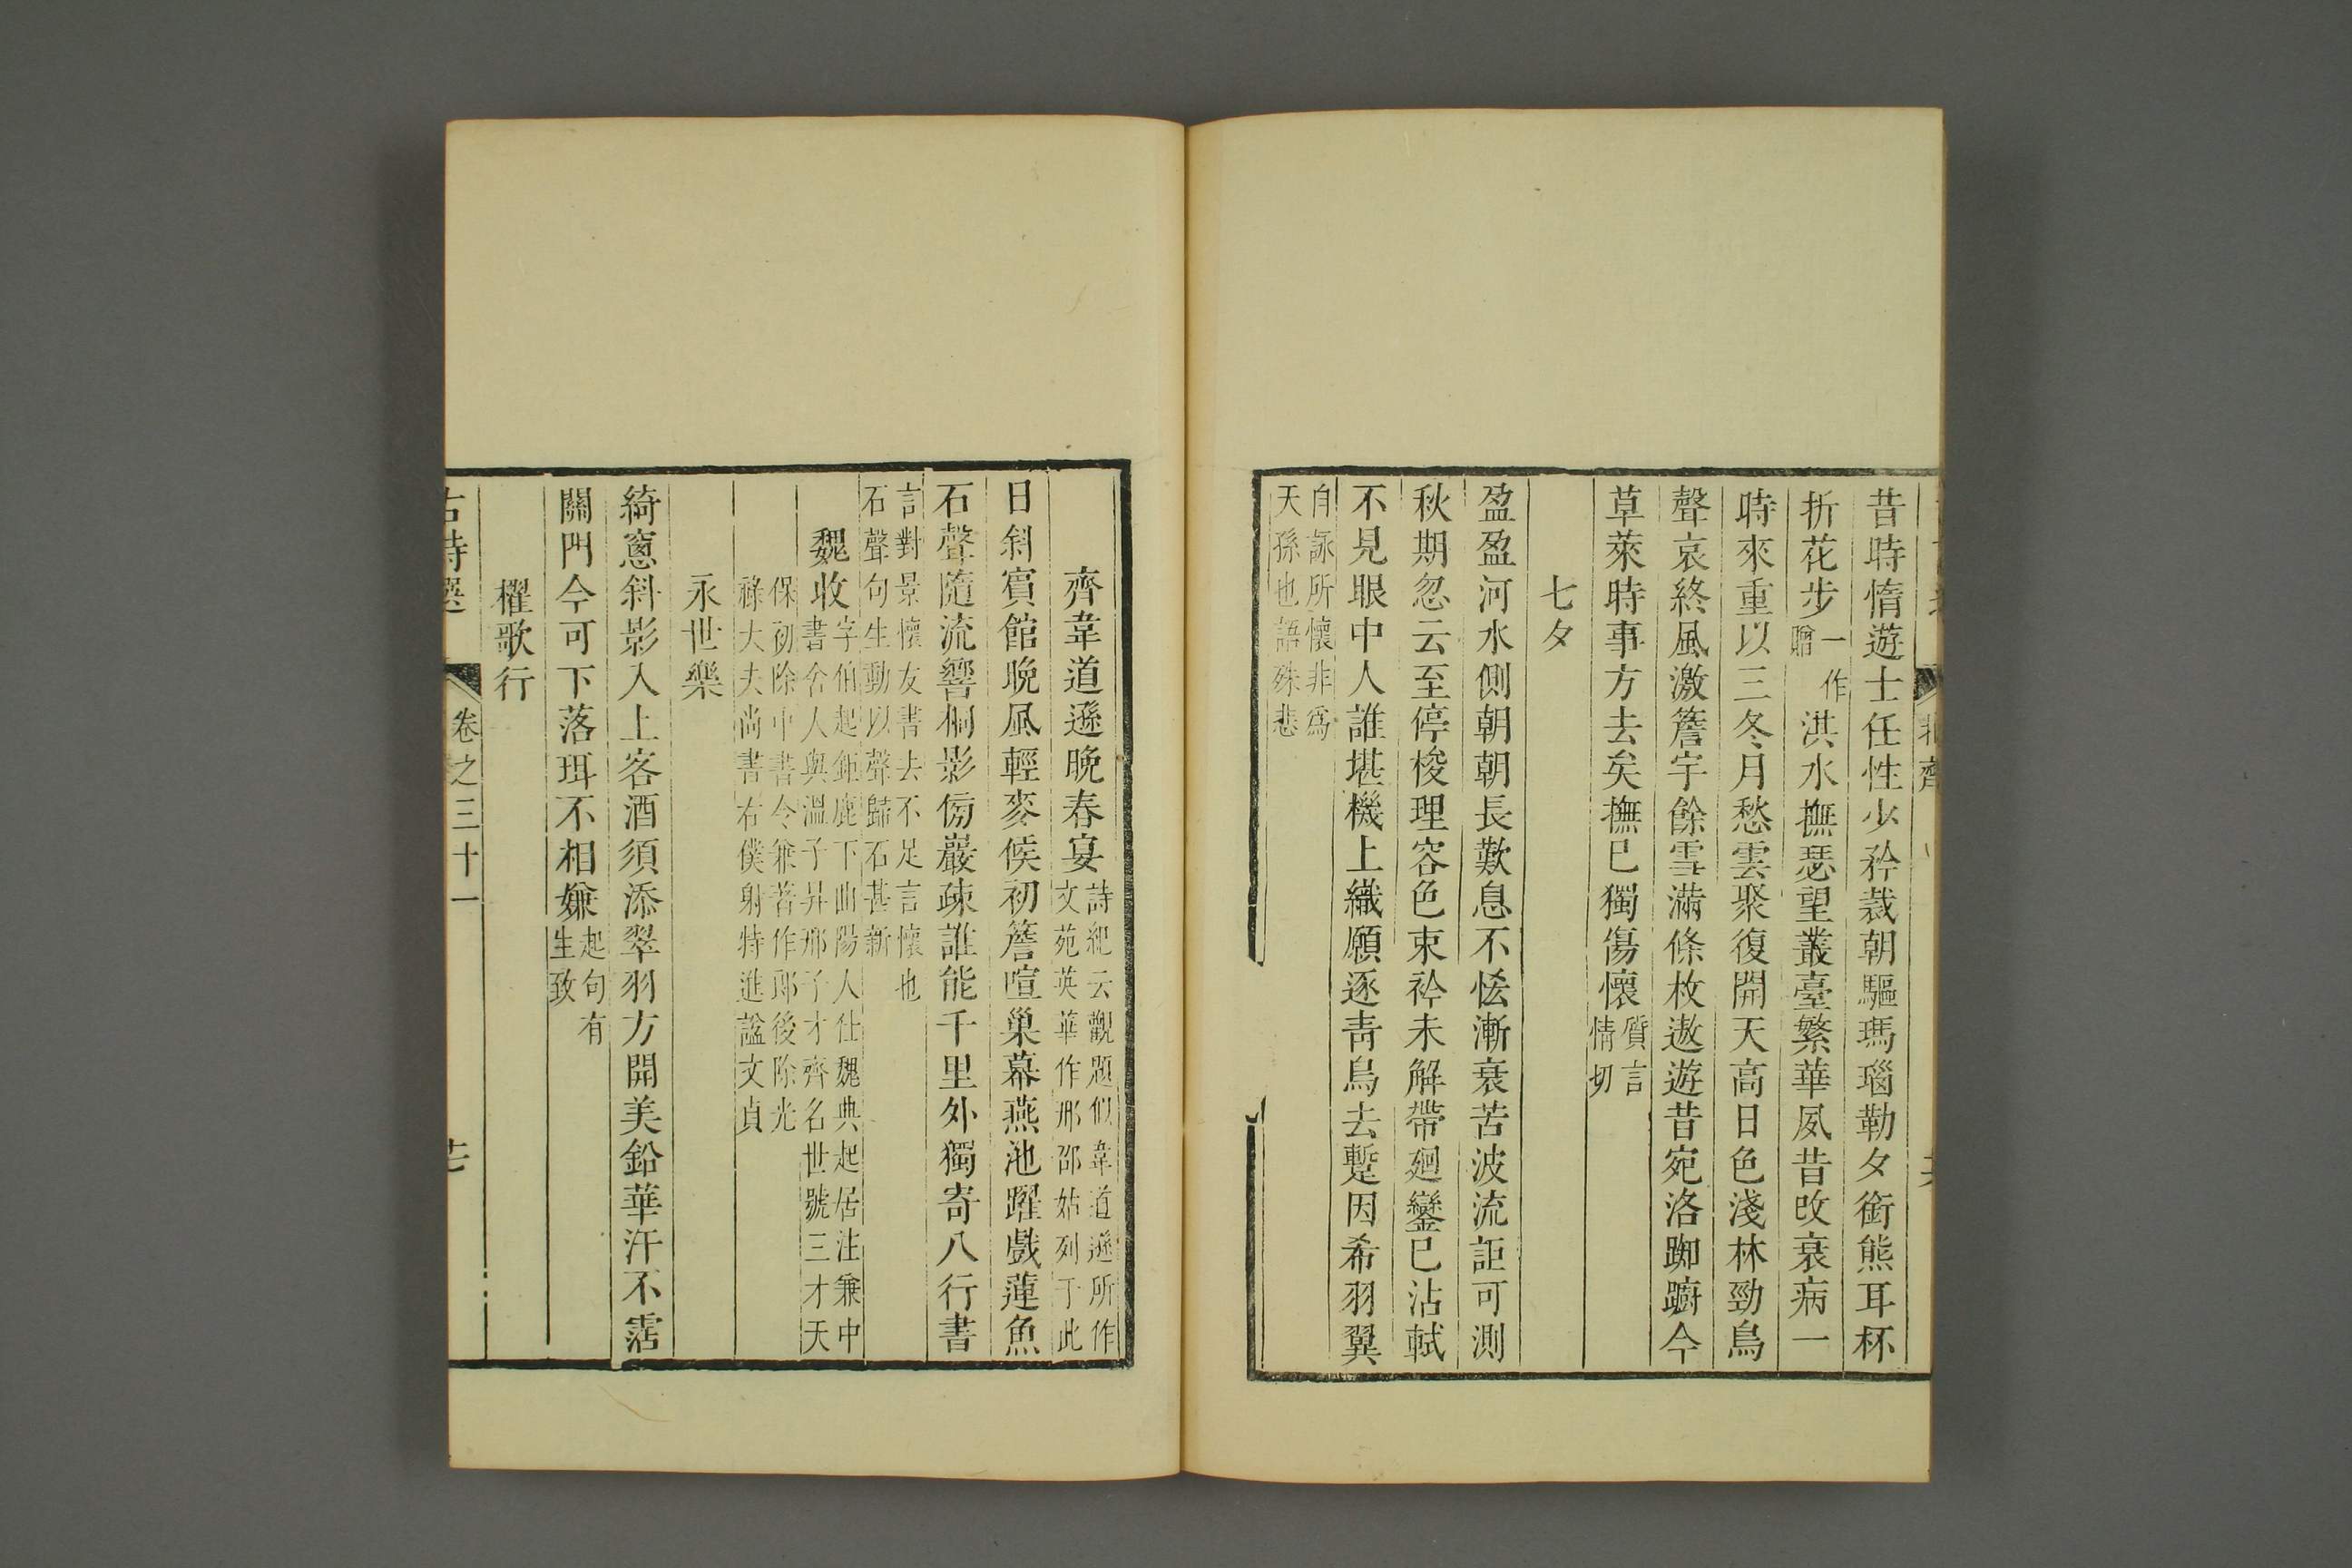 北齊
昔時惰遊士任性少矜裁朝驅瑪瑙勒夕銜熊耳杯
折花步一作贈洪水撫瑟望叢臺繁華夙昔改衰病一
時來重以三冬月愁雲聚復開天高日色淺林勁鳥
聲哀終風激簷宇餘雪滿條枚遨遊昔宛洛踟躕今
草萊時事方去矣撫已獨傷懷質言情切
七夕
盈盈河水側朝朝長歎息不恡漸衰苦波流詎可測
秋期忽云至停梭理容色束衿未解帶廻鑾已沾軾
不見眼中人誰堪機上織願逐青鳥去暫因希羽翼
自詠所懷非爲
天孫也語殊悲
齊韋道遜晚春宴詩紀云觀題似韋道遜所作文苑英華作邢邵姑列于此
日斜賓館晚風輕麥候初簷喧巢幕燕池躍戲蓮魚
石聲隨流響桐影傍巖疎誰能千里外獨寄八行書
言對景懷友書去不足言懷也
石聲句生動以聲歸石甚新
魏收字伯起鉅鹿下曲陽人仕魏典起居注兼中書舍人與溫子昇邢子才齊名世號三才天
保初除中書令兼著作郎後除光
祿大夫尚書右僕射特進諡文貞
永世樂
綺窻斜影入上客酒須添翠羽方開美鉛華汗不霑
關門今可下落珥不相嫌起句有生致
櫂歌行
古詩選
卷之三十一